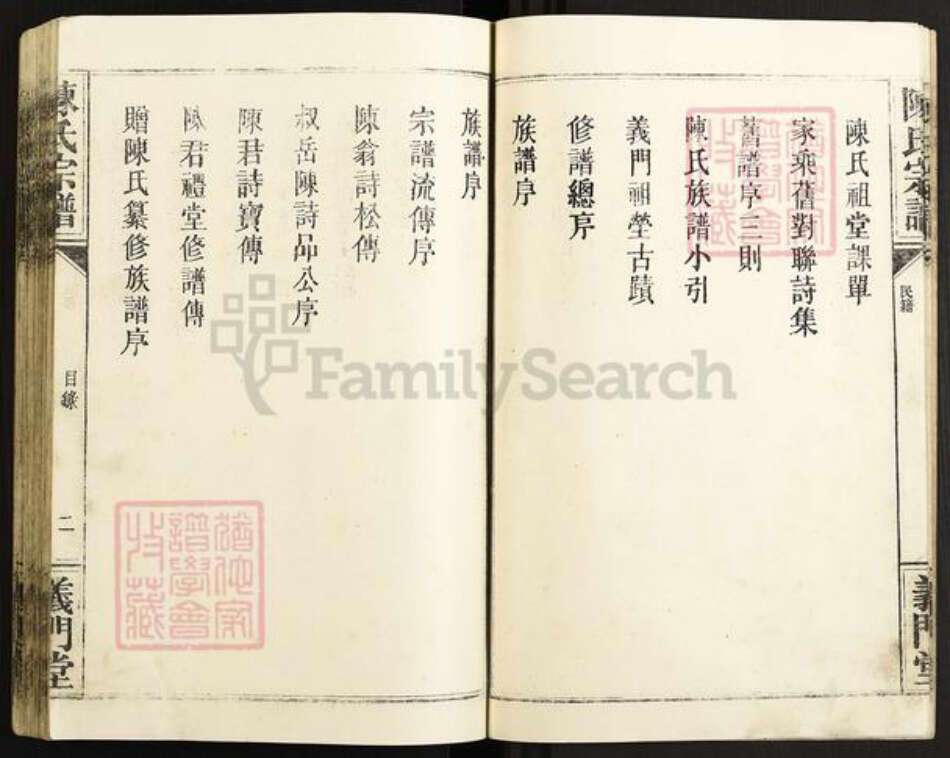 陳氏宗譜
民籍
義門堂
陳氏祖堂課單
家乘舊對聯詩集
舊譜序三則
陳氏族譜小引
義門祖塋古蹟
修譜總序
族譜序
族譜序
宗譜流傳序
陳翁詩松傳
叔岳陳詩品公序
陳君詩寶傳
陳君禮堂修譜傳
贈陳氏纂修族譜序
陳氏宗譜
目錄
二
義門堂
譜學會
收藏
FamilySearch